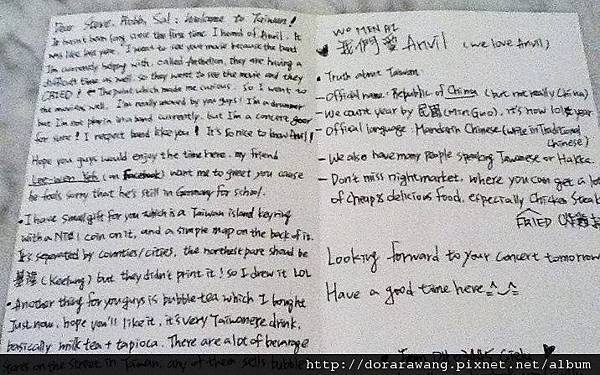 Dear Steve, Robb, Sal: Welcome to Taiwan!
It hasn't been long since the first time I heard of Anvil. It
was like last year, I went to see your movie because the band
I'm currently helping with, called Anthelion, they are having a
difficult time as well, so they went to see the movie and they
CRIED! ← The point which made me curious. So I went to
the movie as well. I'm really moved by you guys! I'm a drummer
but I'm not playin in a band currently, but I'm a concert goer
for sure! I respect band like you! It's so nice to know Anvil!
Hope you guys would enjoy the time here, my friend
Lee-wen Yeh (on Facebook) want me to greet you cause
he feels sorry that he's still in Germany for school.
• I have small gift for you which is a Taiwan island key ring
with a NT$1 coin on it, and a simple map on the back of it.
It's separated by counties/cities, the northest part should be
基隆 (Keelung) but they didn't print it! So I drew it LOL
• Another thing for you guys is bubble tea which I bought
Just now, hope you'll like it, it's very Taiwanese drink,
basically milk tea + tapioca. There are a lot of beverage
stores on the street in Taiwan, any of them sells bubble
WO MEN AI
我們愛 Anvil (we love Anvil)
• Truth about Taiwan
- Official name: Republic of China (but not really China)
- We count year by 民國 (Min Guo), it's now 101 year
- Official language: Mandarin Chinese (write in Traditional
Chinese)
- We also have many people speaking Taiwanese or Hakka.
- Don't miss nightmarket, where you can get a lot
of cheap & delicious food, especially Chicken Steak
FRIED
Looking forward to your concert tomorrow
Have a good time here ^_^
http://dorarawang.pixnet.net/album